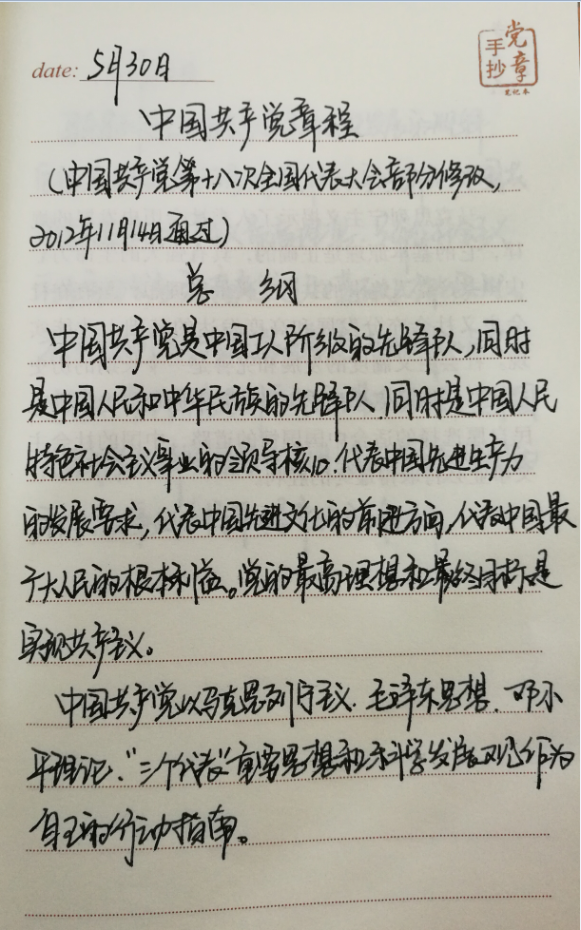 date: 5月30日
党章
手抄
笔记本
中国共产党章程
(中国共产党第十八次全国代表大会部分修改,
2012年11月14日通过)
总 纲
中国共产党是中国工人阶级的先锋队,同时
是中国人民和中华民族的先锋队.同时是中国人民
特色社会主义事业的领导核心.代表中国先进生产力
的发展要求,代表中国先进文化的前进方向,代表中国最
广大人民的根本利益。党的最高理想和最终目标是
实现共产主义。
中国共产党以马克思列宁主义.毛泽东思想.邓小
平理论."三个代表"重要思想和科学发展观作为
自己的行动指南。